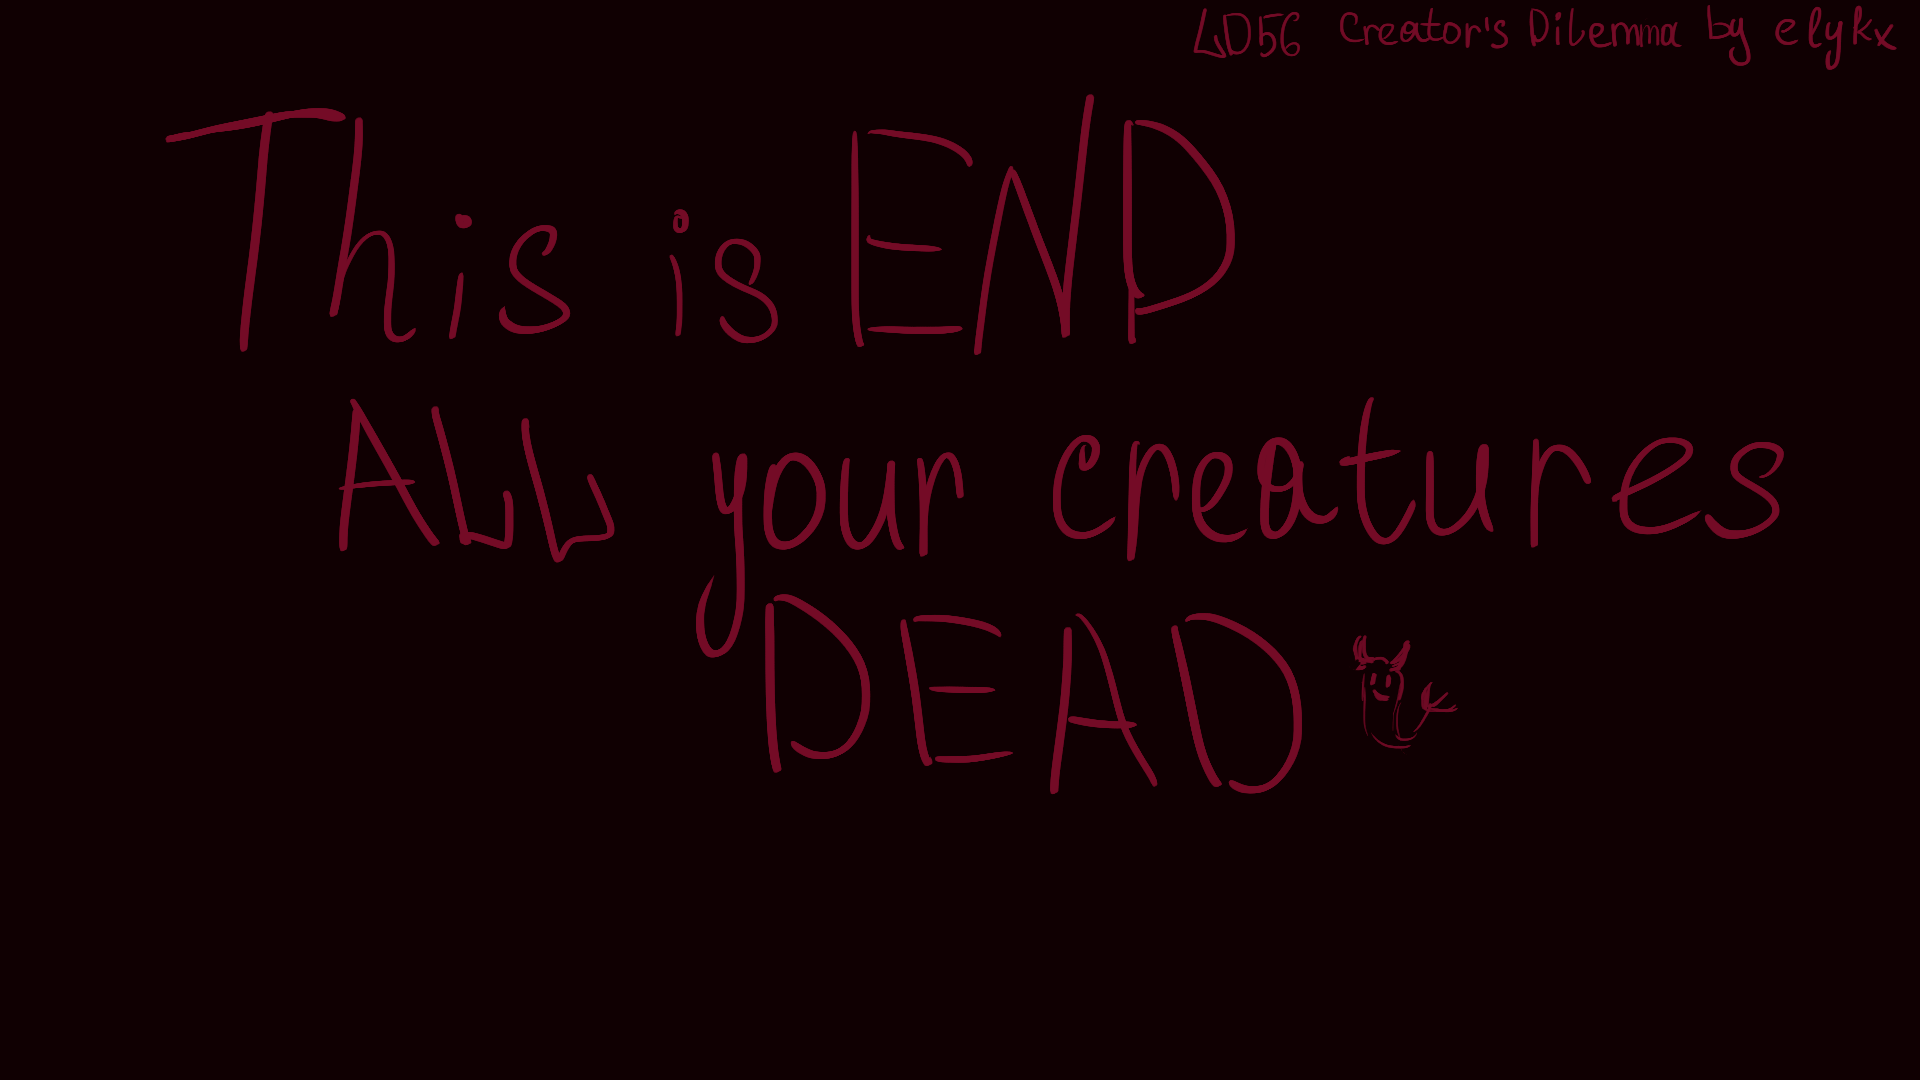 LD56 Creator's Dilemma by elykx
This is END
ALL your creatures
DEAD